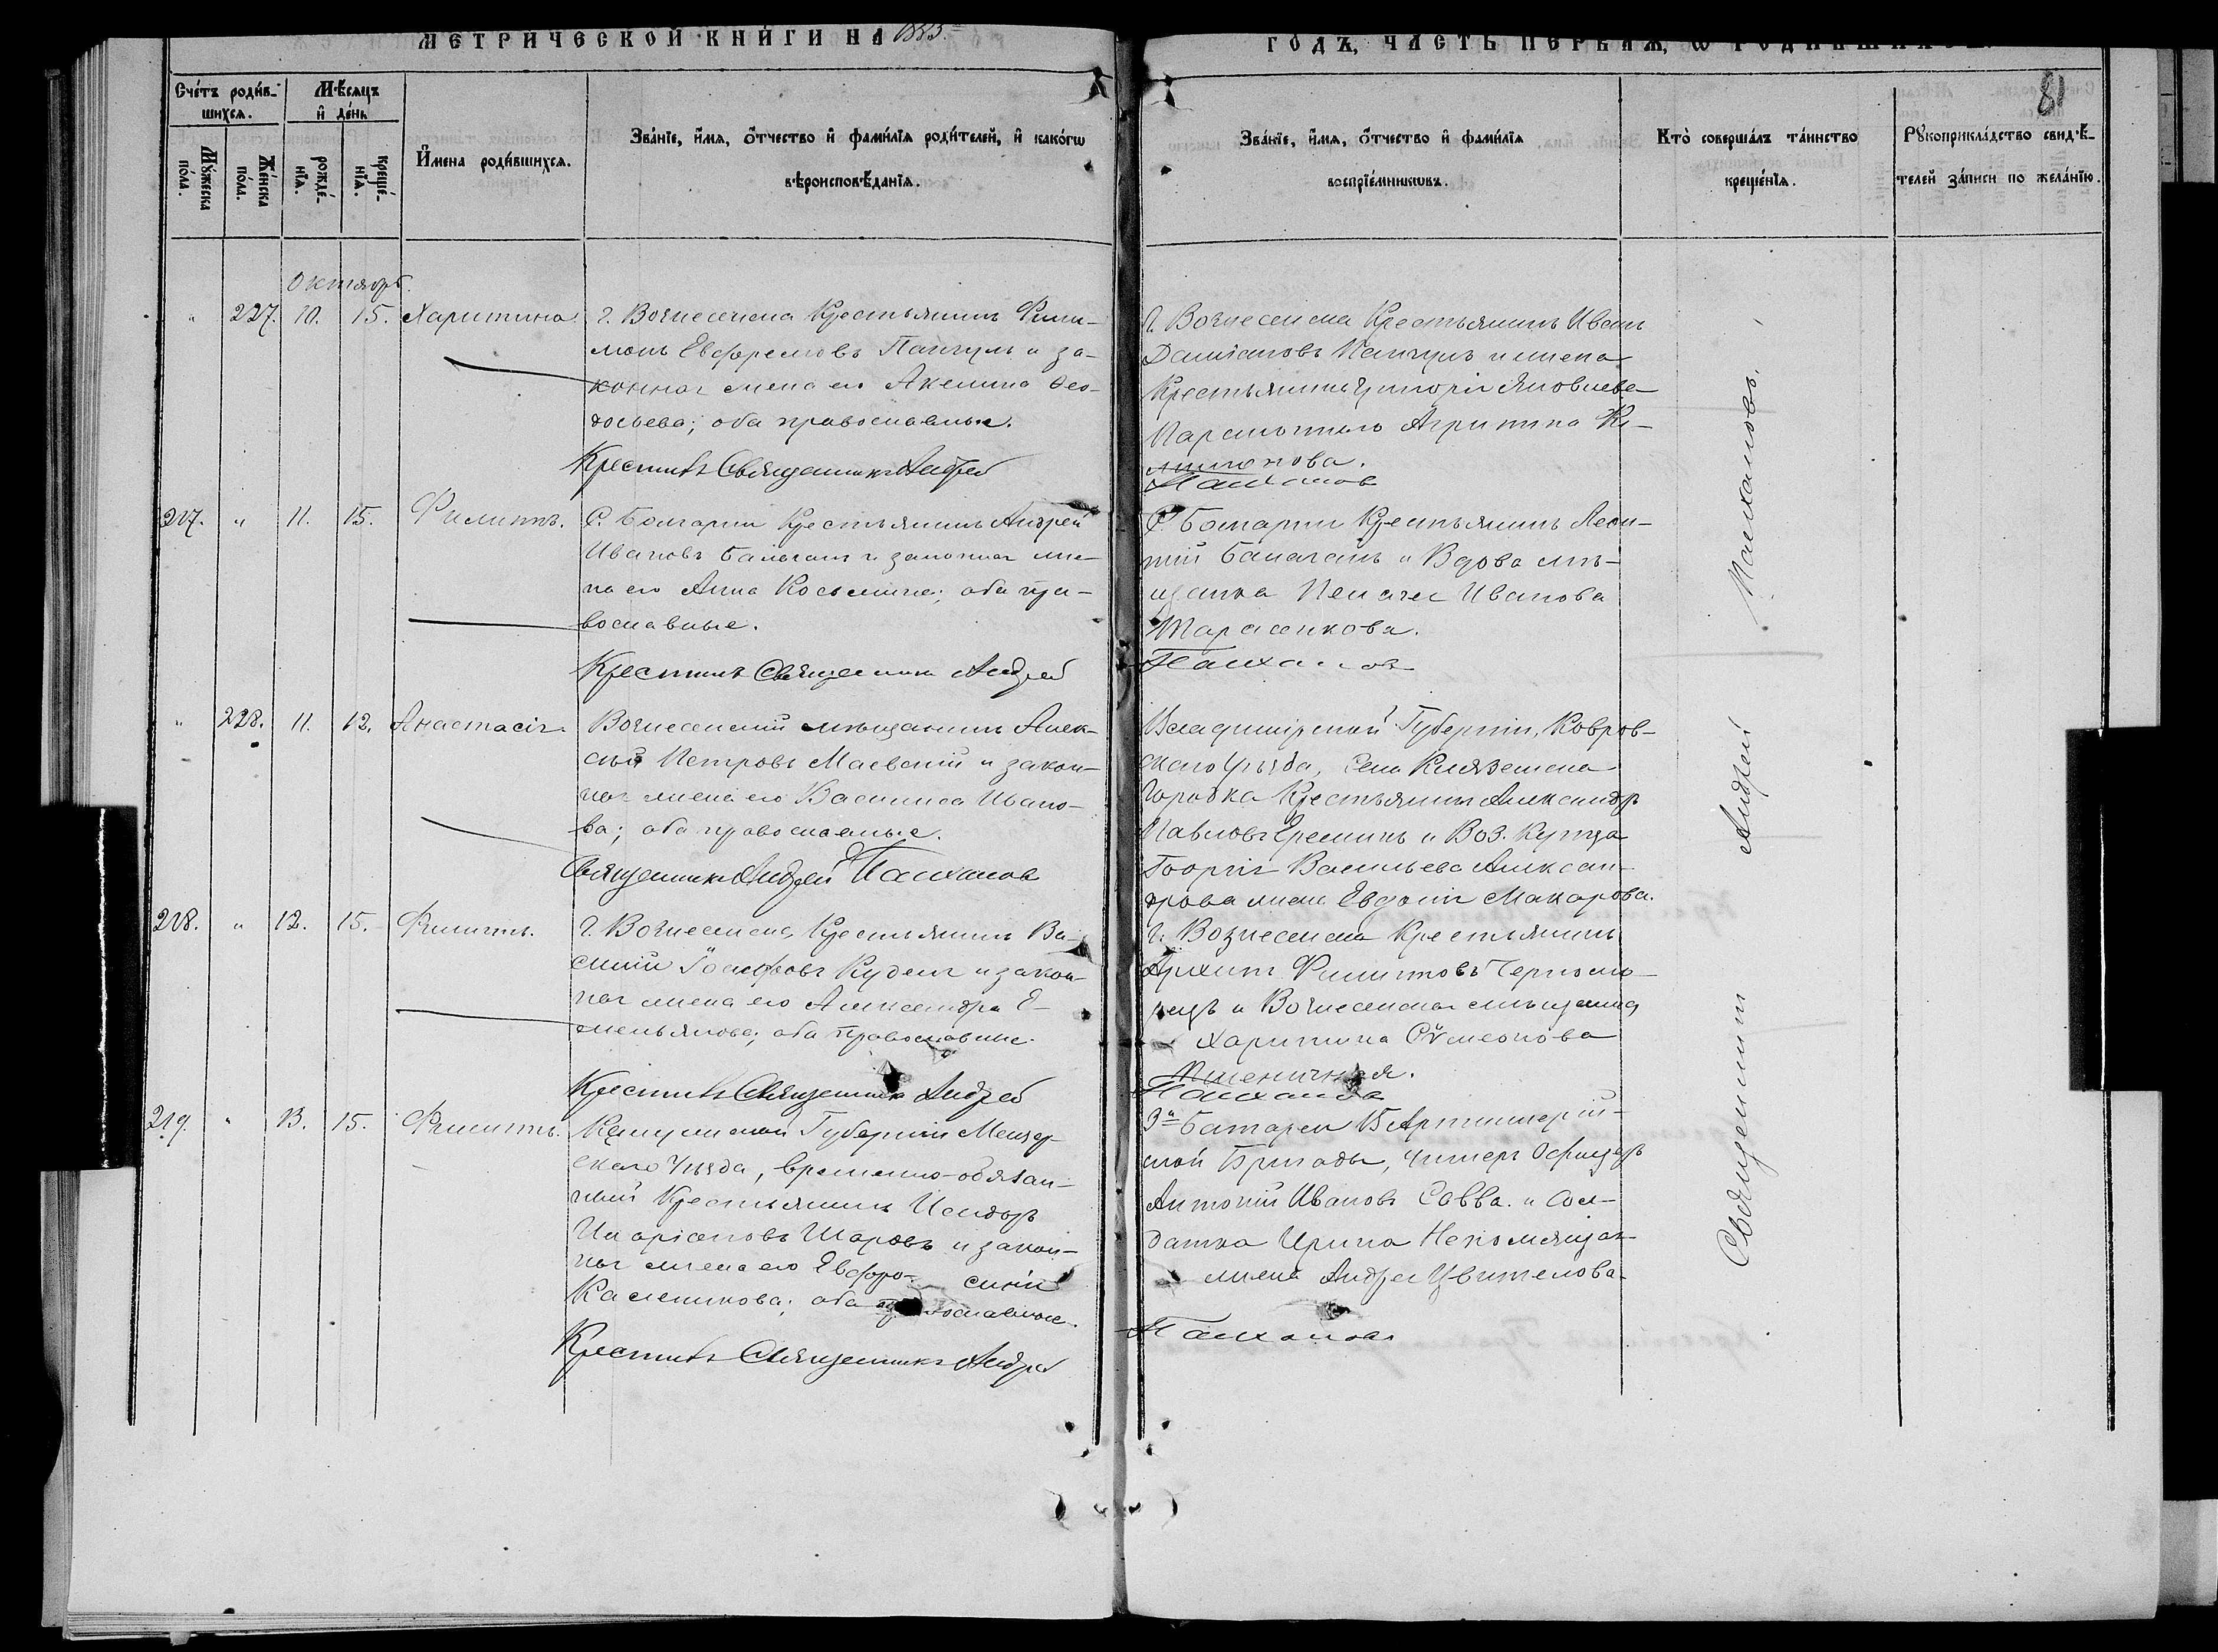 МЕТРИЧЕСКОЙ КНИГИ НА 1883.
ГОДЪ, ЧАСТЬ ПЕРВАЯ, Ѡ РОДИВШИХСЯ.
81
Счетъ родив-
шихся.
Мѣсяцъ
и день
Мужеска
пола.
Женска
пола.
рожде-
нїя.
креще-
нїя.
Имена родившихся.
Званїе, имя, отчество и фамилїя родителей, и какогѡ
вѣроисповѣданїя.
Званїе, имя, отчество и фамилїя
воспрїемниковъ.
Кто совершалъ таинство
крещенїя.
Рꙋкоприкладство свидѣ-
телей записи по желанїю.
Октябрь.
" 227. 10. 15. Харитина
г. Вознесенска Крестьянинъ Фили-
монъ Евфремовъ Панчулъ и за-
конная жена его Акелина Ѳео-
досьева; оба православные.
Крестилъ Священникъ Андрей
г. Вознесенска Крестьянинъ Иванъ
Даміановъ Панчулъ и жена
Крестьянина Григорія Яковлева
Агрипина
Палхановъ
217. " 11. 15. Филиппъ.
С. Болгарки Крестьянинъ Андрей
Ивановъ и законная же-
на его Анна Косьмина; оба пра-
вославные.
Крестилъ Священникъ Андрей
С. Болгарки Крестьянинъ Леон-
тій и Вдова мѣ-
щанка Пелагея Иванова
Тарасенкова.
Палхановъ
" 228. 11. 12. Анастасія.
Вознесенскій мѣщанинъ Алек-
сѣй Петровъ Маевскій и закон-
ная жена его Василиса Ивано-
ва; оба православные.
Священникъ Андрей Палхановъ
Владимірской Губерніи, Ковров-
скаго Уѣзда, Села Клязьмена
Городка Крестьянинъ Александръ
Павловъ Ереминъ и Воз. Купца
Георгія Васильева Алексан-
дрова жена Евдокія Макарова.
218. " 12. 15. Филиппъ.
г. Вознесенска, Крестьянинъ Ва-
силій Іосифовъ Куделя и закон-
ная жена его Александра Е-
мельянова; оба православные.
Крестилъ Священникъ Андрей
г. Вознесенска Крестьянинъ
Архипъ Филиповъ Черномо-
рецъ и Вознесенская мѣщанка
Харитина Сѵмеонова
Пшеничная.
Палхановъ
219. " 13. 15. Филиппъ.
Калужской Губерніи
скаго Уѣзда, временно-обязан-
ный Крестьянинъ Исидоръ
Иларіоновъ Шаровъ и закон-
ная жена его Евфро- синія
оба православные.
Крестилъ Священникъ Андрей
3й батареи 15 Артиллерій-
ской Бригады, Унтеръ Офицеръ
Антоній Ивановъ Савва. и Сол-
датка Ирина
жена Андрея
Палхановъ
Священникъ Андрей Палхановъ.